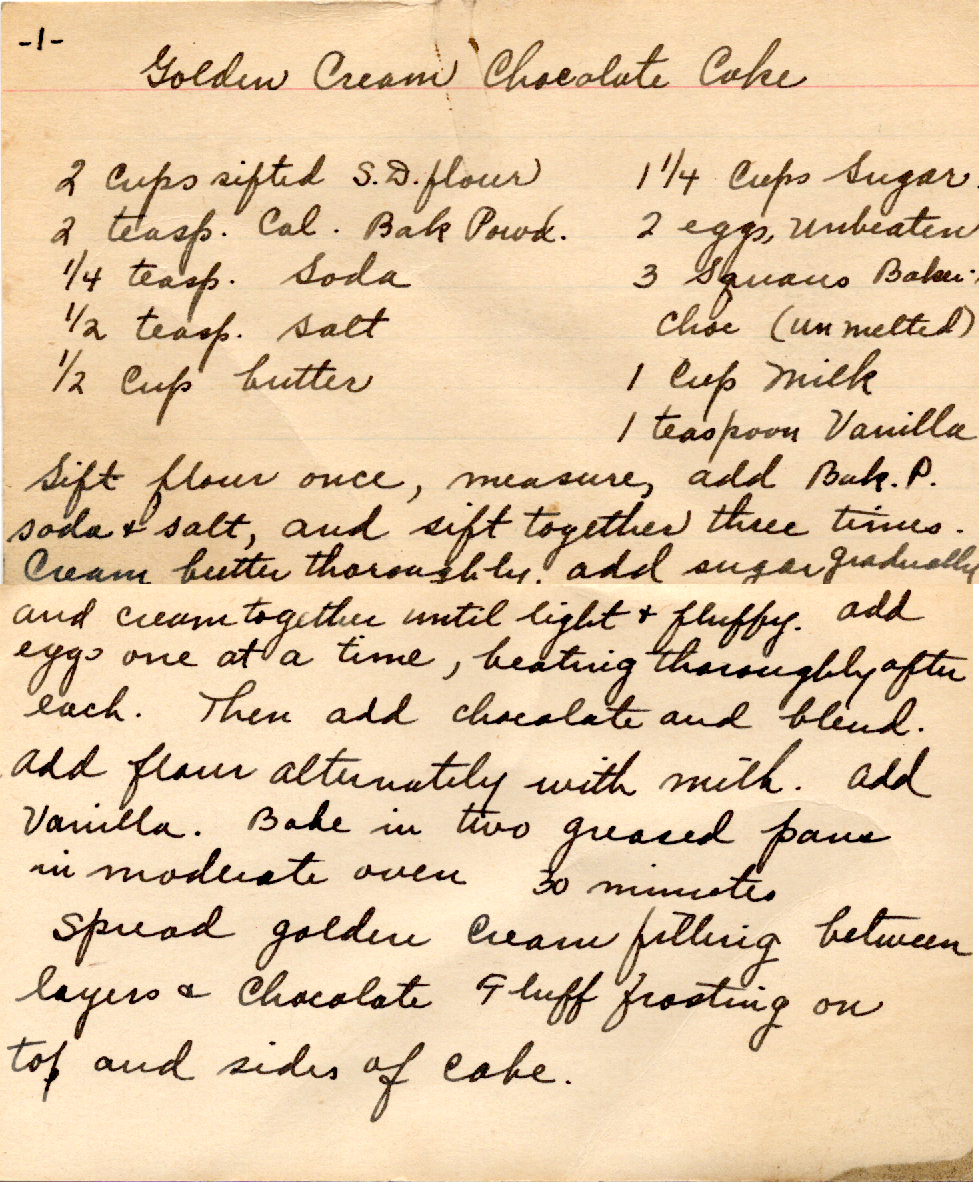 -1-
Golden Cream Chocolate Cake
2 cups sifted S.D. flour
2 teasp. Cal. Bak Powd.
1/4 teasp. Soda
1/2 teasp. salt
1/2 cup butter
1 1/4 cups Sugar
2 eggs, unbeaten
3 Squares Baker's
choc (unmelted)
1 cup milk
1 teaspoon Vanilla
Sift flour once, measure, add Bak. P.
soda & salt, and sift together three times.
Cream butter thoroughly, add sugar gradually
and cream together until light & fluffy. add
eggs one at a time, beating thoroughly after
each. Then add chocolate and blend.
add flour alternately with milk. add
Vanilla. Bake in two greased pans
in moderate oven 30 minutes
Spread golden cream filling between
layers & Chocolate Fluff frosting on
top and sides of cake.